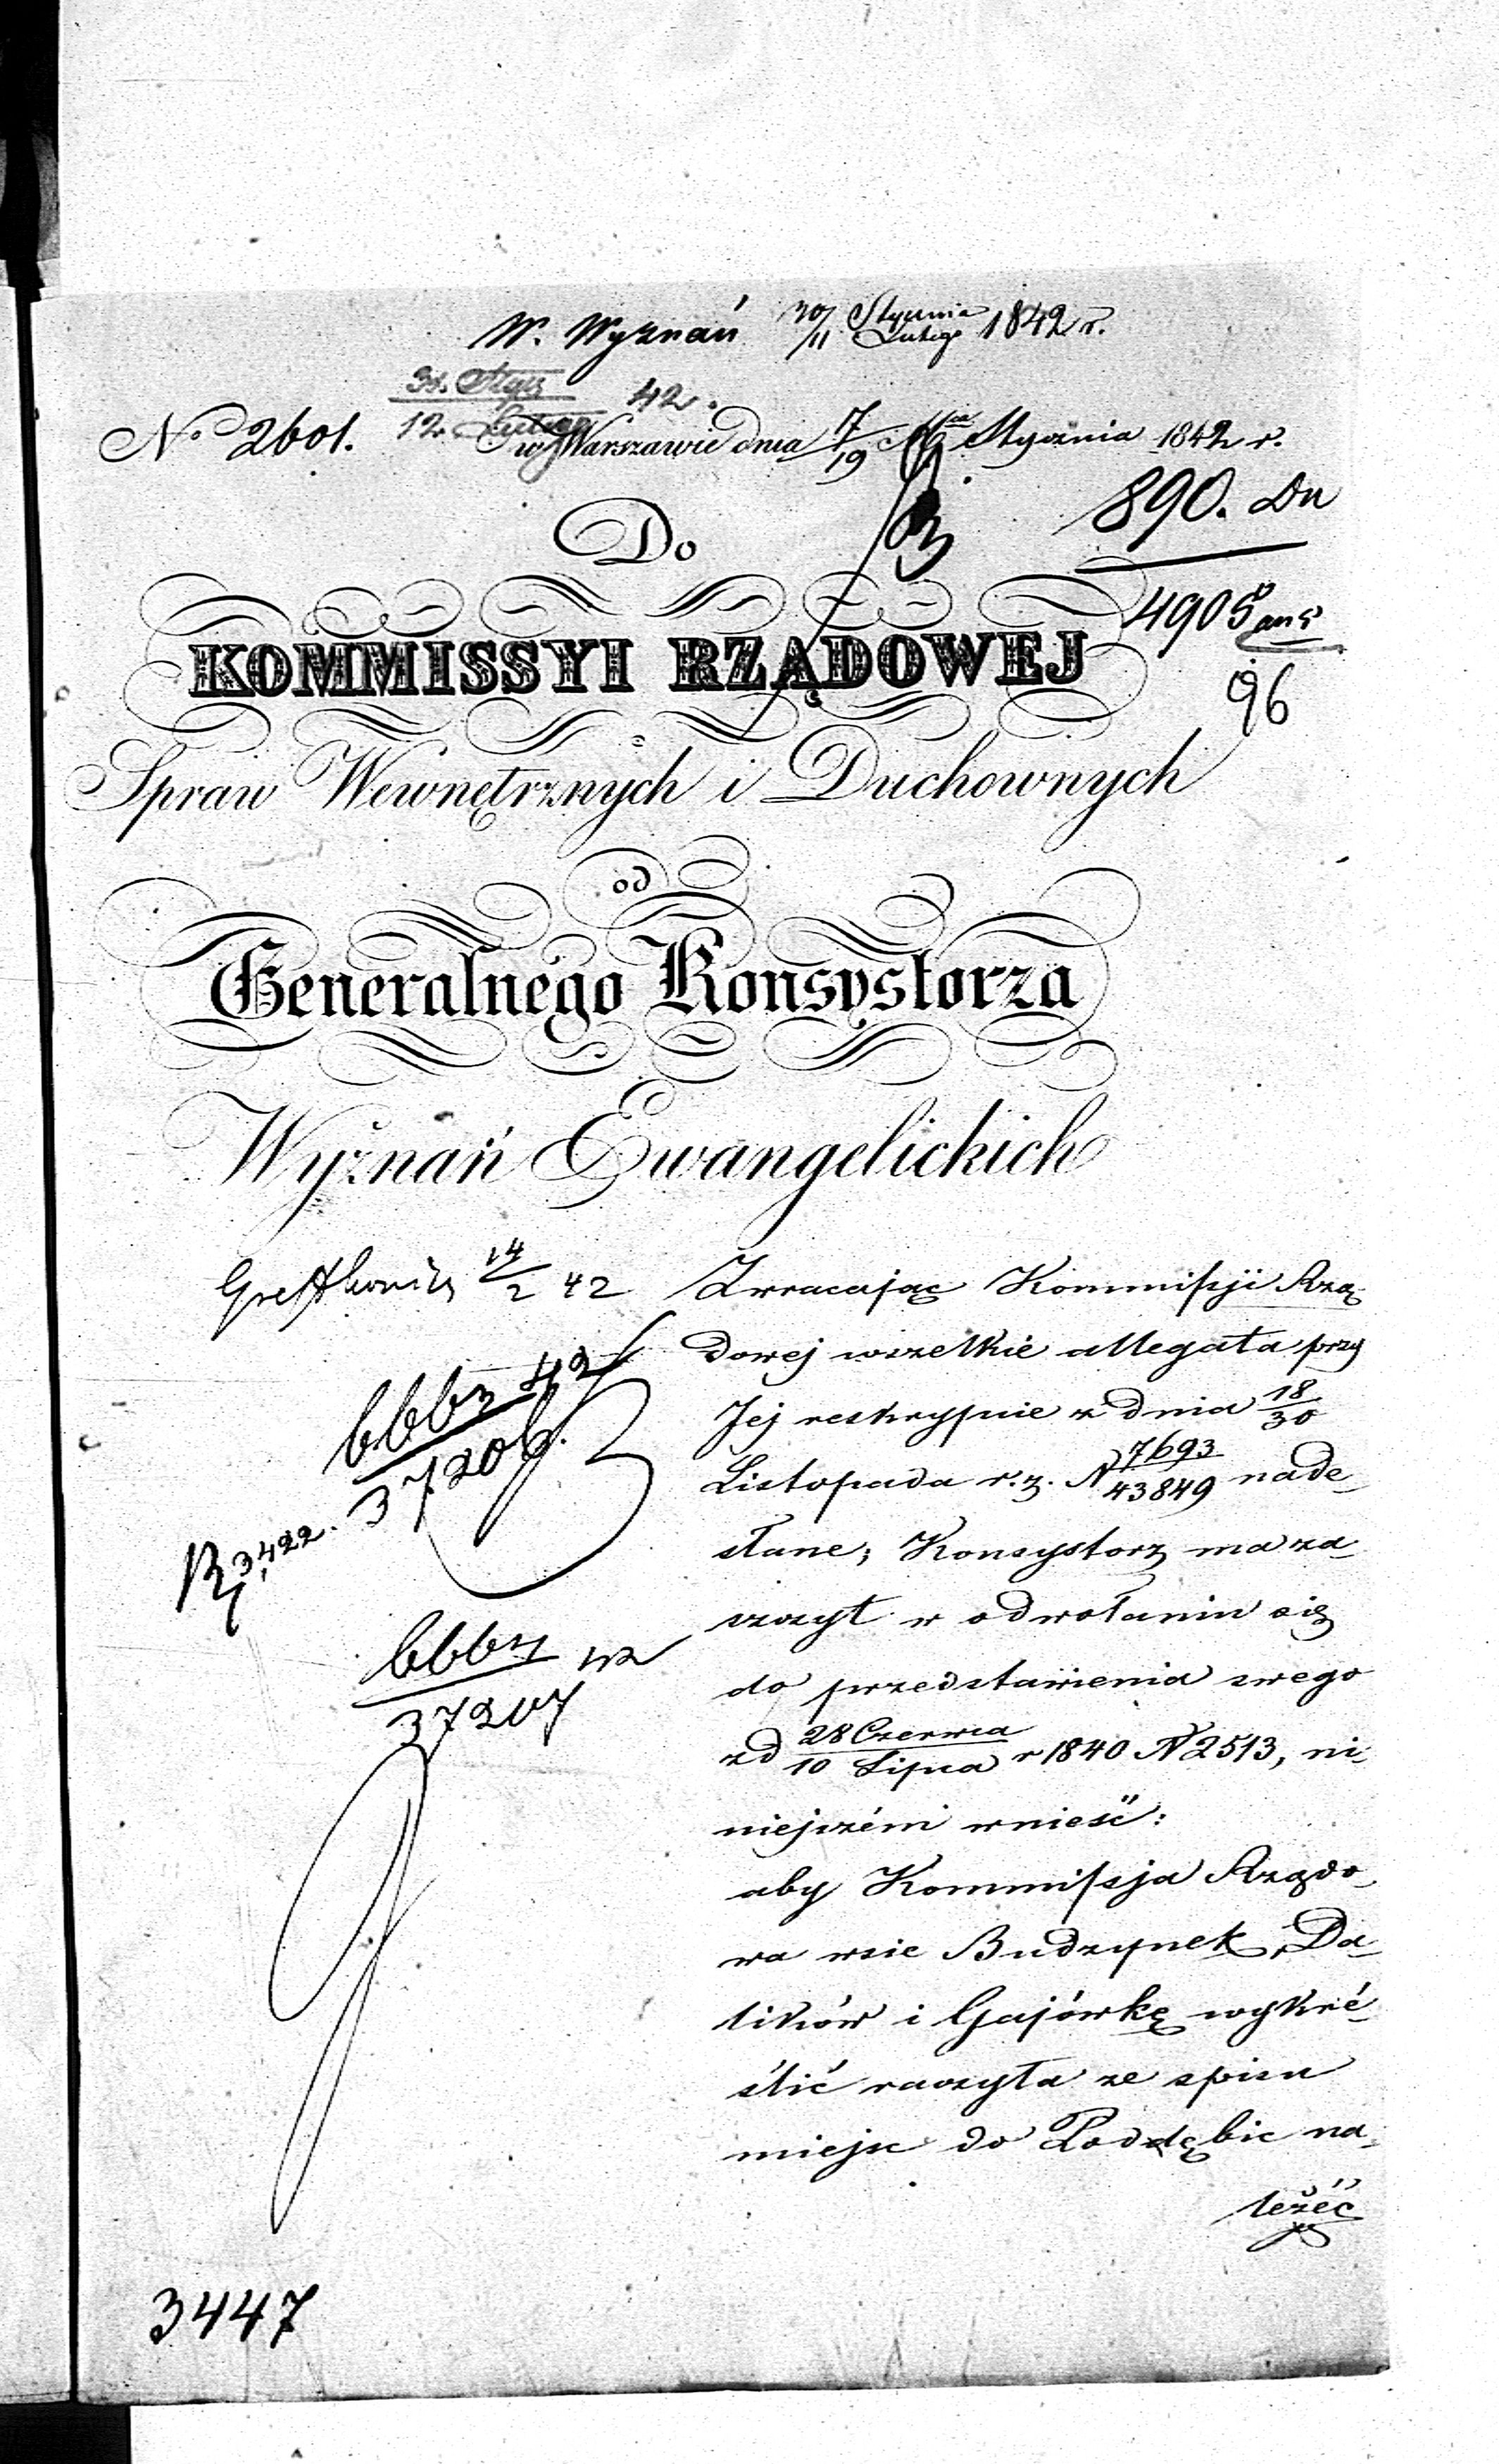 W. Wyznań 30/11 Stycznia Lutego 1842 r.
31. Stycz
12. Lutego 42.
No 2601. w Warszawie dnia 7/19 Stycznia 1842 r.
890. Dn
Do
4905
96
KOMMISSYI RZĄDOWEJ
Spraw Wewnętrznych i Duchownych
od
Generalnego Konsystorza
Wyznań Ewangelickich
14/2 42
Zwracając Kommissyi Rzą-
dowej wszelkie allegata przy
Jej reskrypcie z dnia 18/30
Listopada r.z. N 7693/43849 nade-
słane; Konsystorz ma za-
szczyt w odwołaniu się
do przedstawienia swego
zd 28 Czerwca/10 Lipca r 1840 N 2513, ni-
niejszém wnieść:
aby Kommissja Rządo-
wa wsie Budzynek, Da-
lików i Gajówkę wykré-
ślić raczyła ze spisu
miejsc do Poddębic na-
leżéć
6663 42
37206.
3422.
6664 42
37207
3447